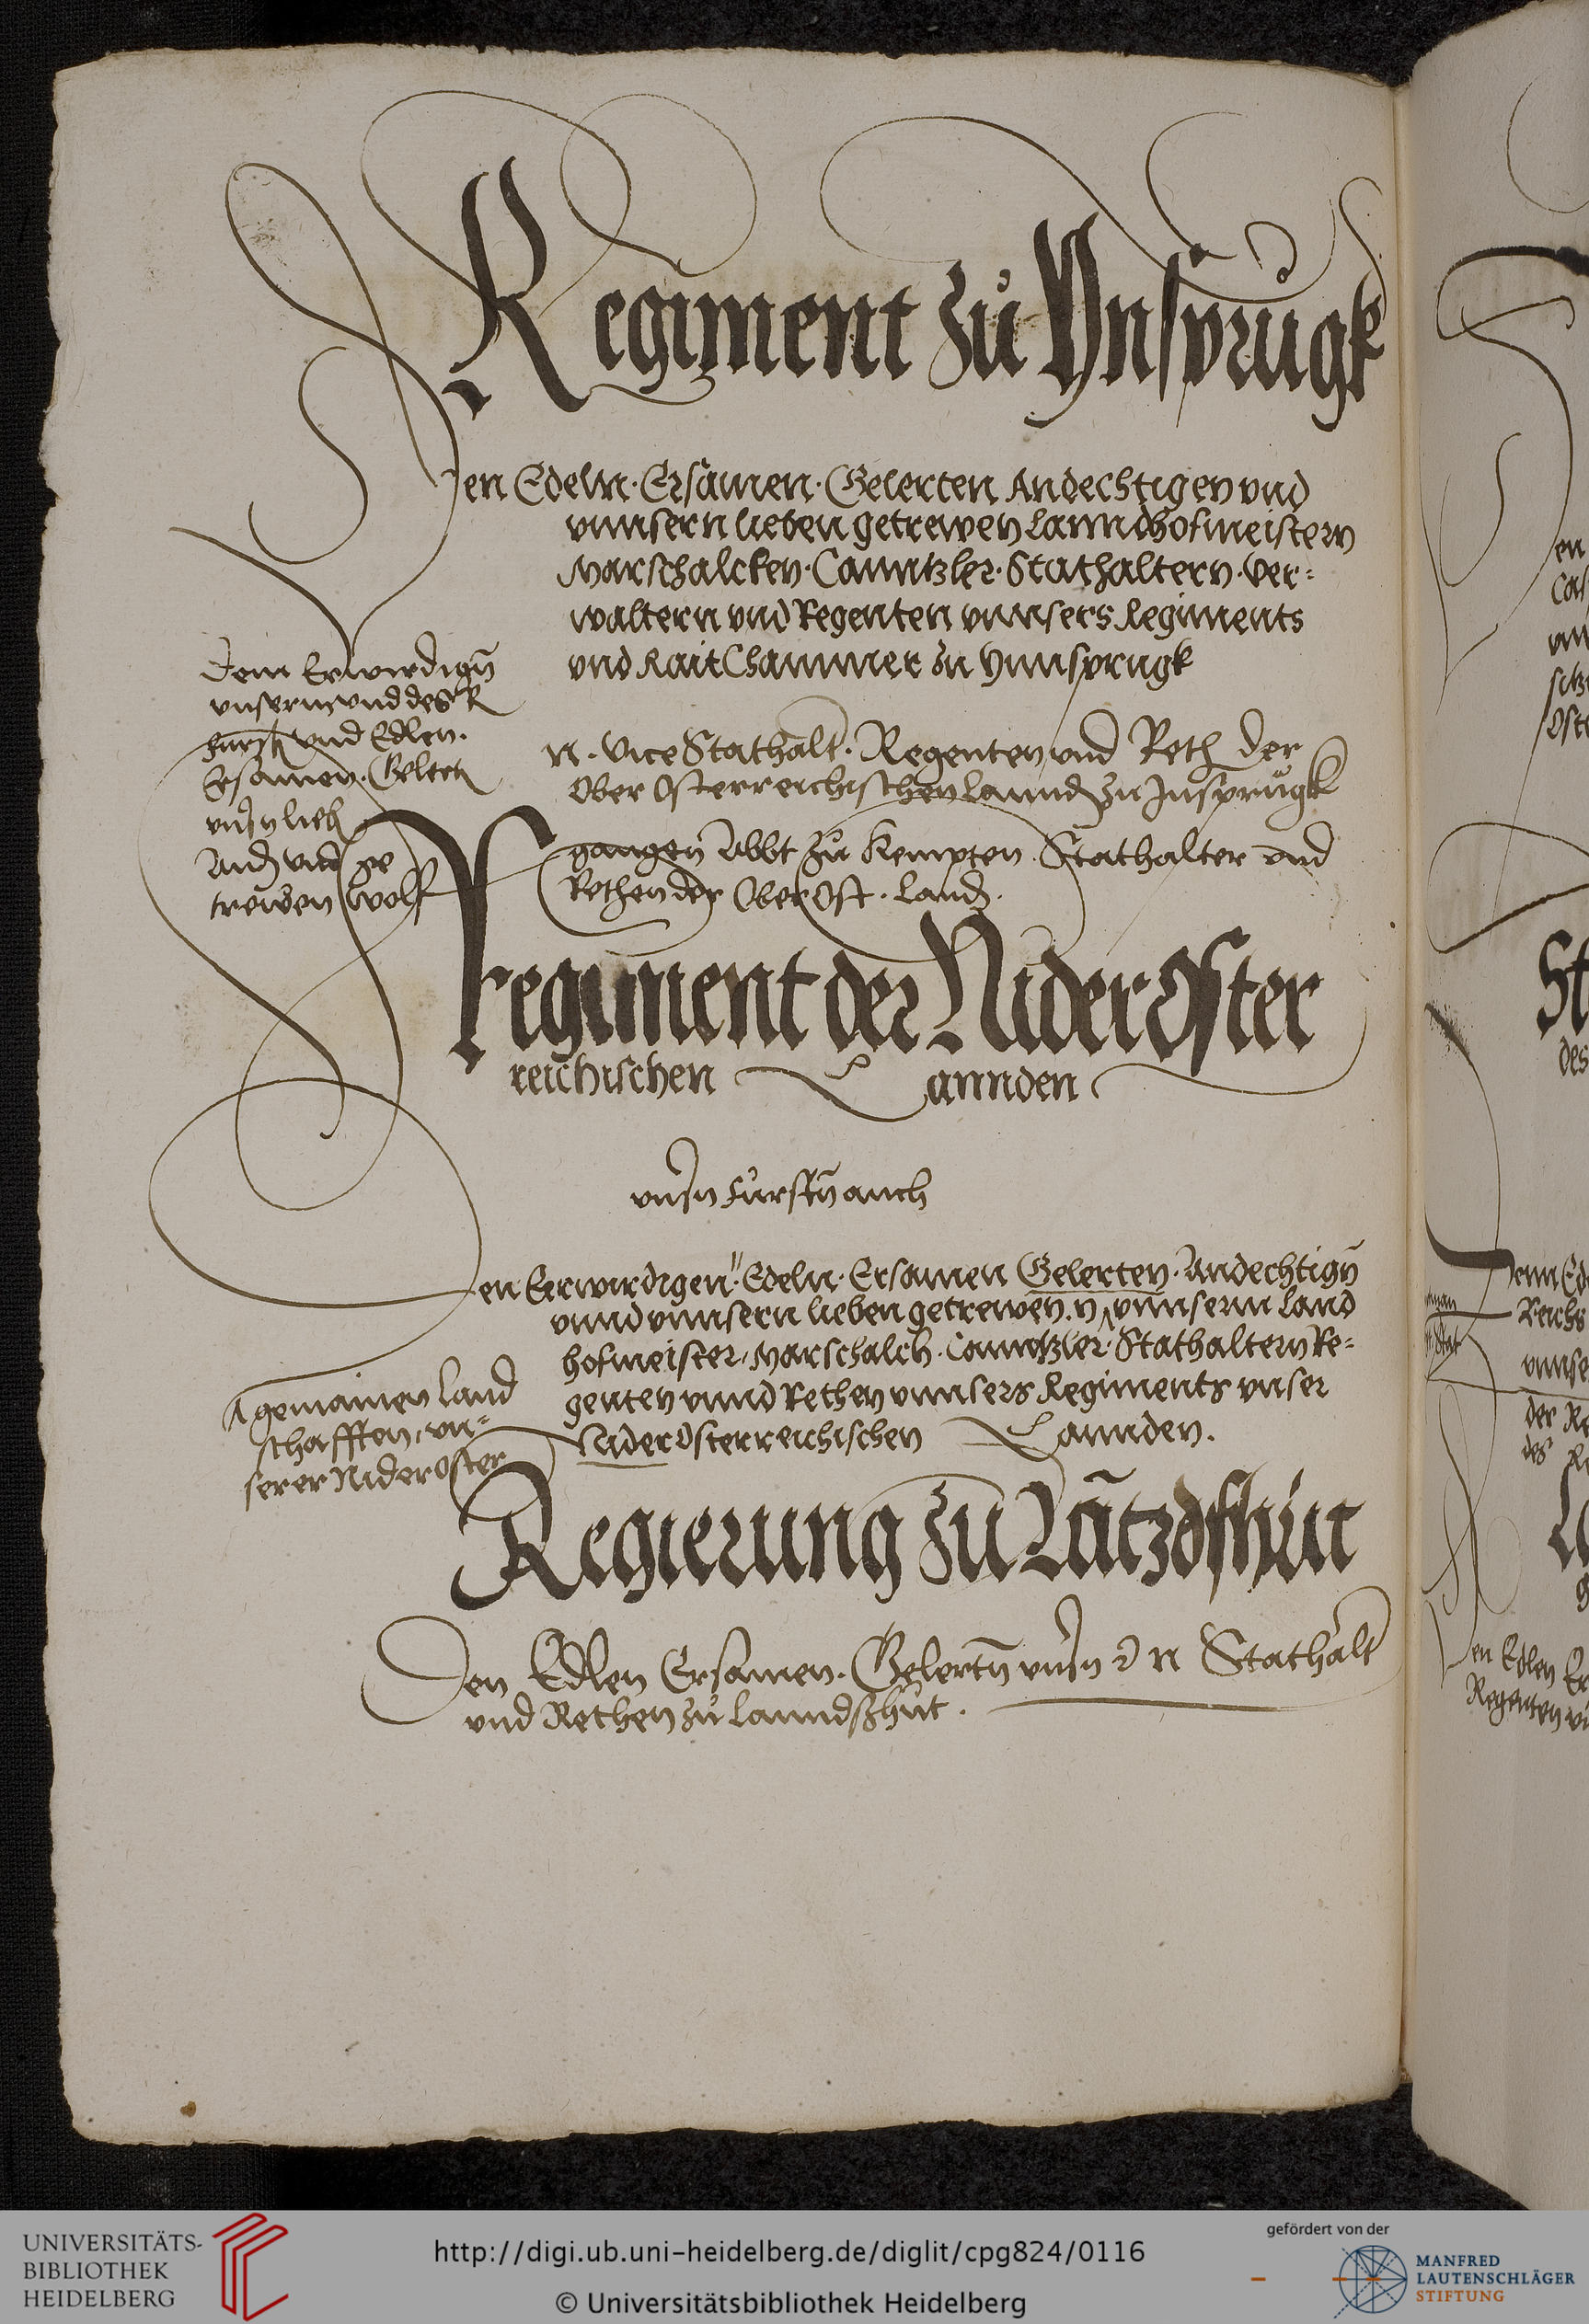 Regiment zu Ynsprugk
Den Edeln. Ersamen. Gelerten Andechtigen vnd
vnnsern lieben getrewen Lanndhofmeistern
Marschalcken. Canntzler. Stathaltern. Ver=
waltern vnd Regenten vnnsers Regiments
vnd RaitChammer zu Ynnsprugk
Dem Erwirdigñ
vnserm vnd des R
fürstñ vnd Edlen.
Ersamen. Gelert
vnsn lieb
And vnd ge
trewen Wolf
N. ViceStathalt. Regenten vnd Reth der
Ober Osterreichischen Lannd zu Insprugk
gangen Abbt zu Kempten. Stathalter vnd
Rethen der Ober Ost. Land.
Regiment der Nider Oster
reichischen Lannden
vnsn Fürstñ auch
Den Eerwirdigen. Edeln. Ersamen Gelerten. Andechtigñ
vnnd vnnsern lieben getrewen. N vnnserm Land
hofmeister. Marschalch. Canntzler. Stathaltern Re=
genten vnnd Rethen vnnsers Regiments vnser
NiderOsterreichischen Lannden.
gemainen Land
schafften, vn=
serer NiderOster
Regierung zu Lãtzdshut
Den Edlen Ersamen. Gelertñ vnsn N Stathalt
vnd Rethen zu Lanndßhut.
en
St
des
Reichs
vnnse
der Re
des
en Edlen Er
Regenten
UNIVERSITÄTS-
BIBLIOTHEK
HEIDELBERG
http://digi.ub.uni-heidelberg.de/diglit/cpg824/0116
© Universitätsbibliothek Heidelberg
gefördert von der
MANFRED
LAUTENSCHLÄGER
STIFTUNG